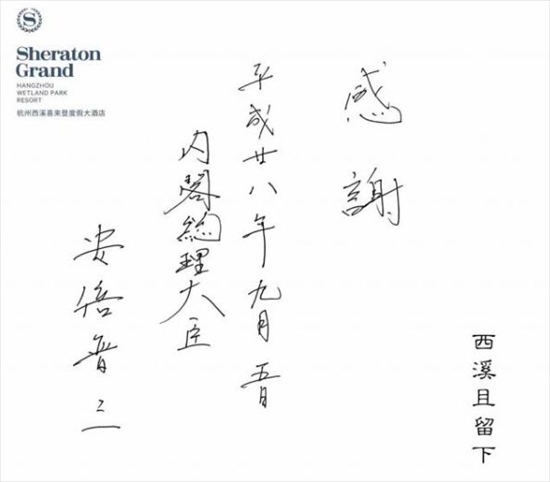 S
Sheraton
Grand
HANGZHOU
WETLAND PARK
RESORT
杭州西溪喜来登度假大酒店
感謝
平成廿八年九月五日
内閣総理大臣
安倍晋三
西溪且留下